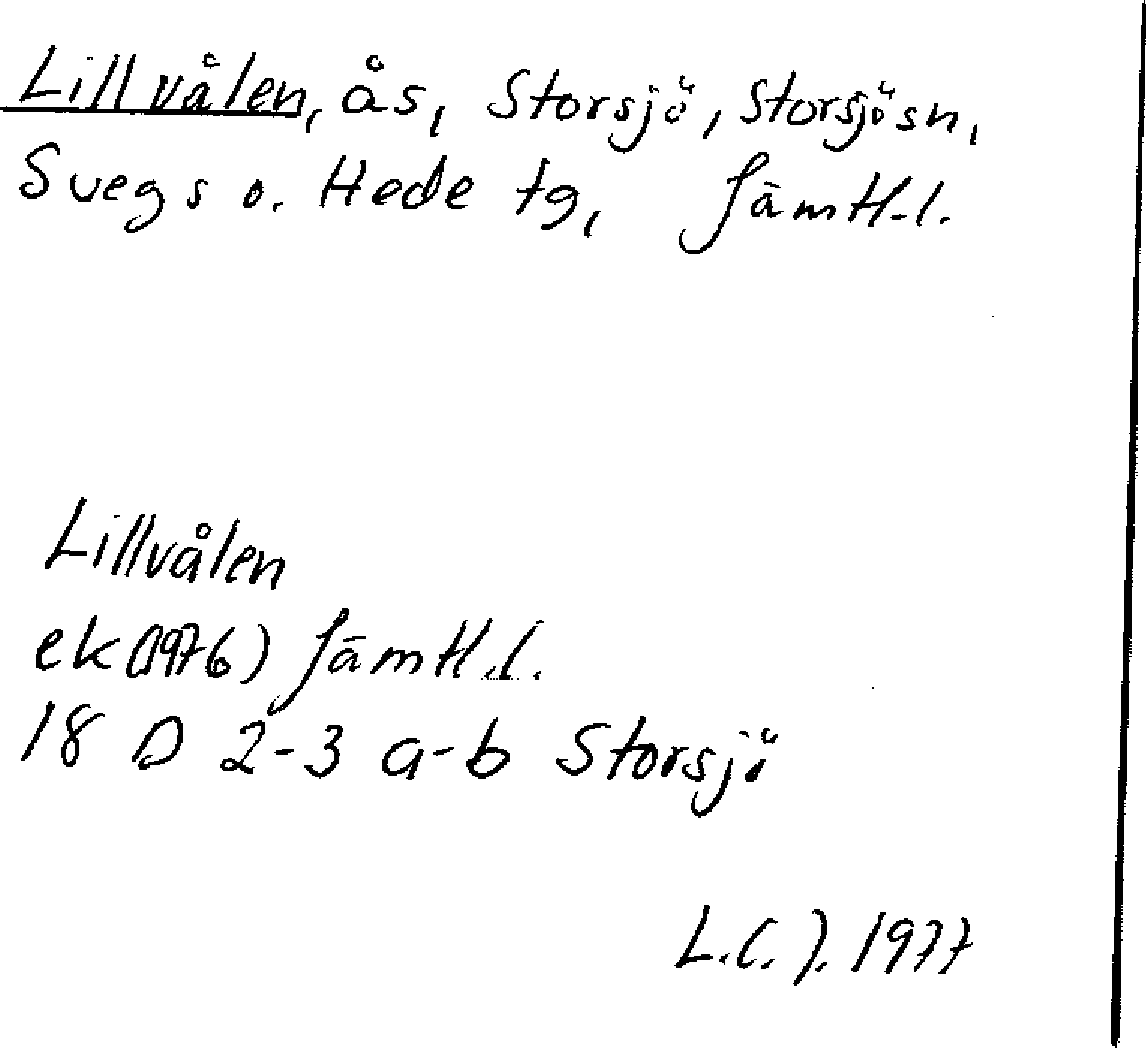 Lillvålen, ås, Storsjö, Storsjö sn,
Svegs o. Hede tg, Jämtl.l.
Lillvålen
ek(1976) Jämtl.l.
18 D 2-3 a-b Storsjö
L.C.J. 1977